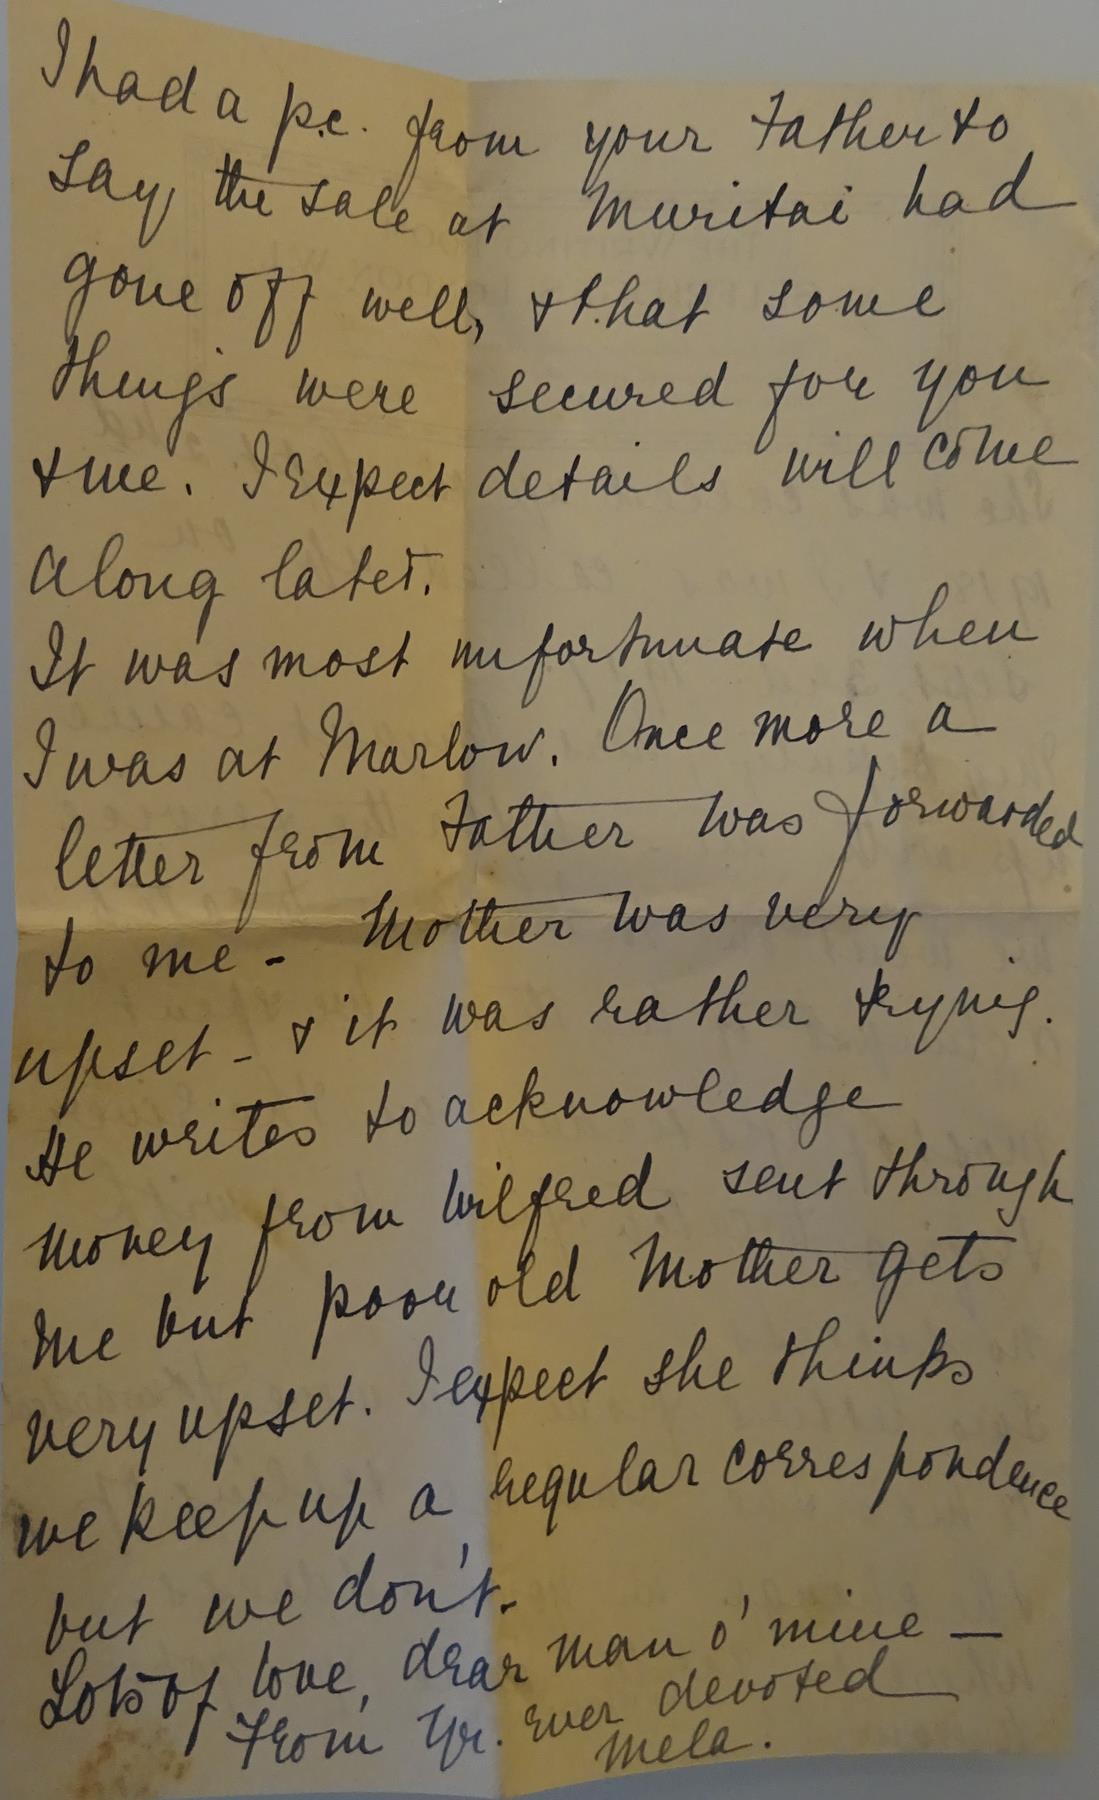 I had a p.c. from your Father to
say the sale at Muritai had
gone off well, & that some
things were secured for you
& me. I expect details will come
along later.
It was most unfortunate when
I was at Marlow. Once more a
letter from Father was forwarded
to me - Mother was very
upset - & it was rather trying.
He writes to acknowledge
money from Wilfred sent through
me but poor old Mother gets
very upset. I expect she thinks
we keep up a regular correspondence
but we don't.
Lots of love, dear man o' mine —
From Yr. ever devoted
Mela.